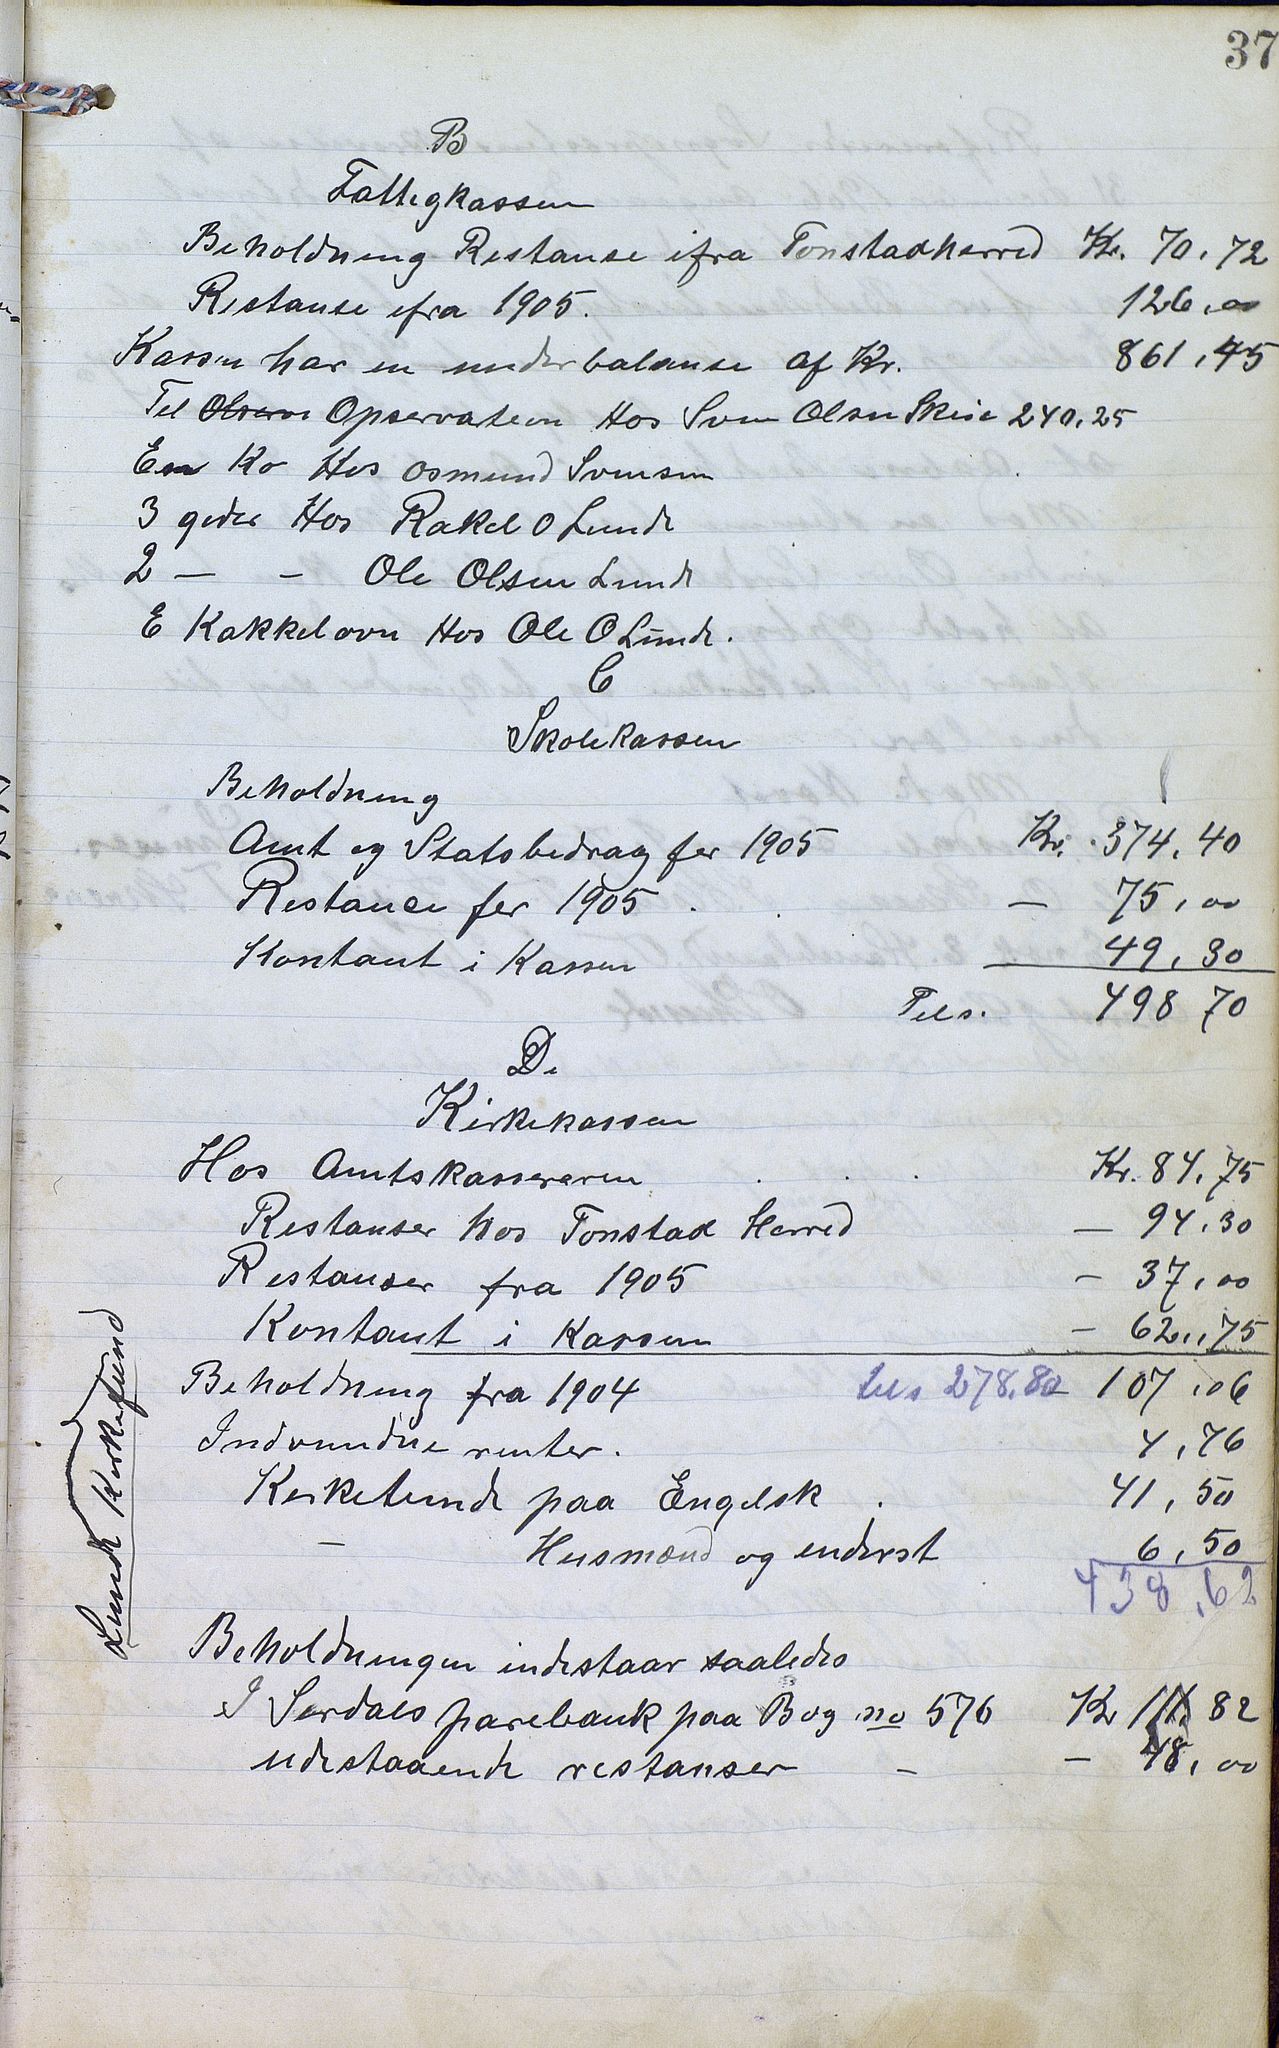 37
B
Fattigkassen
Beholdning Restanse ifra Tonstadherred Kr. 70,72
Restanse ifra 1905. 126,00
Kassen har en underbalanse af Kr. 861,45
Til Opservation Hos Sven Olsen Skeie 240,25
En Ko Hos Osmund Svensen
3 geder Hos Rakel O Lunde
2 — – Ole Olsen Lunde
E Kakkelovn Hos Ole O Lunde.
C
Skolekassen
Beholdning
Amt og Statsbedrag for 1905 Kr. 374,40
Restance for 1905 . . — 75,00
Kontant i Kassen 49,30
Tils. 498 70
D.
Kirkekassen
Hos Amtskassereren . . . Kr. 84,75
Restanser hos Tonstad Herred — 94,30
Restanser fra 1905 – 37,00
Kontant i Kassen – 62,75
Beholdning fra 1904 tils 278.80 107,06
Indvundne renter. 4,76
Kirketiende paa Engelsk . 41,50
– Husmænd og inderst 6,50
438,62
Lunde Kirkefund
Beholdningen indestaar saaledes
I Serdals parebank paa Bog no 576 Kr 111 82
udestaaende restanser – – 48,00